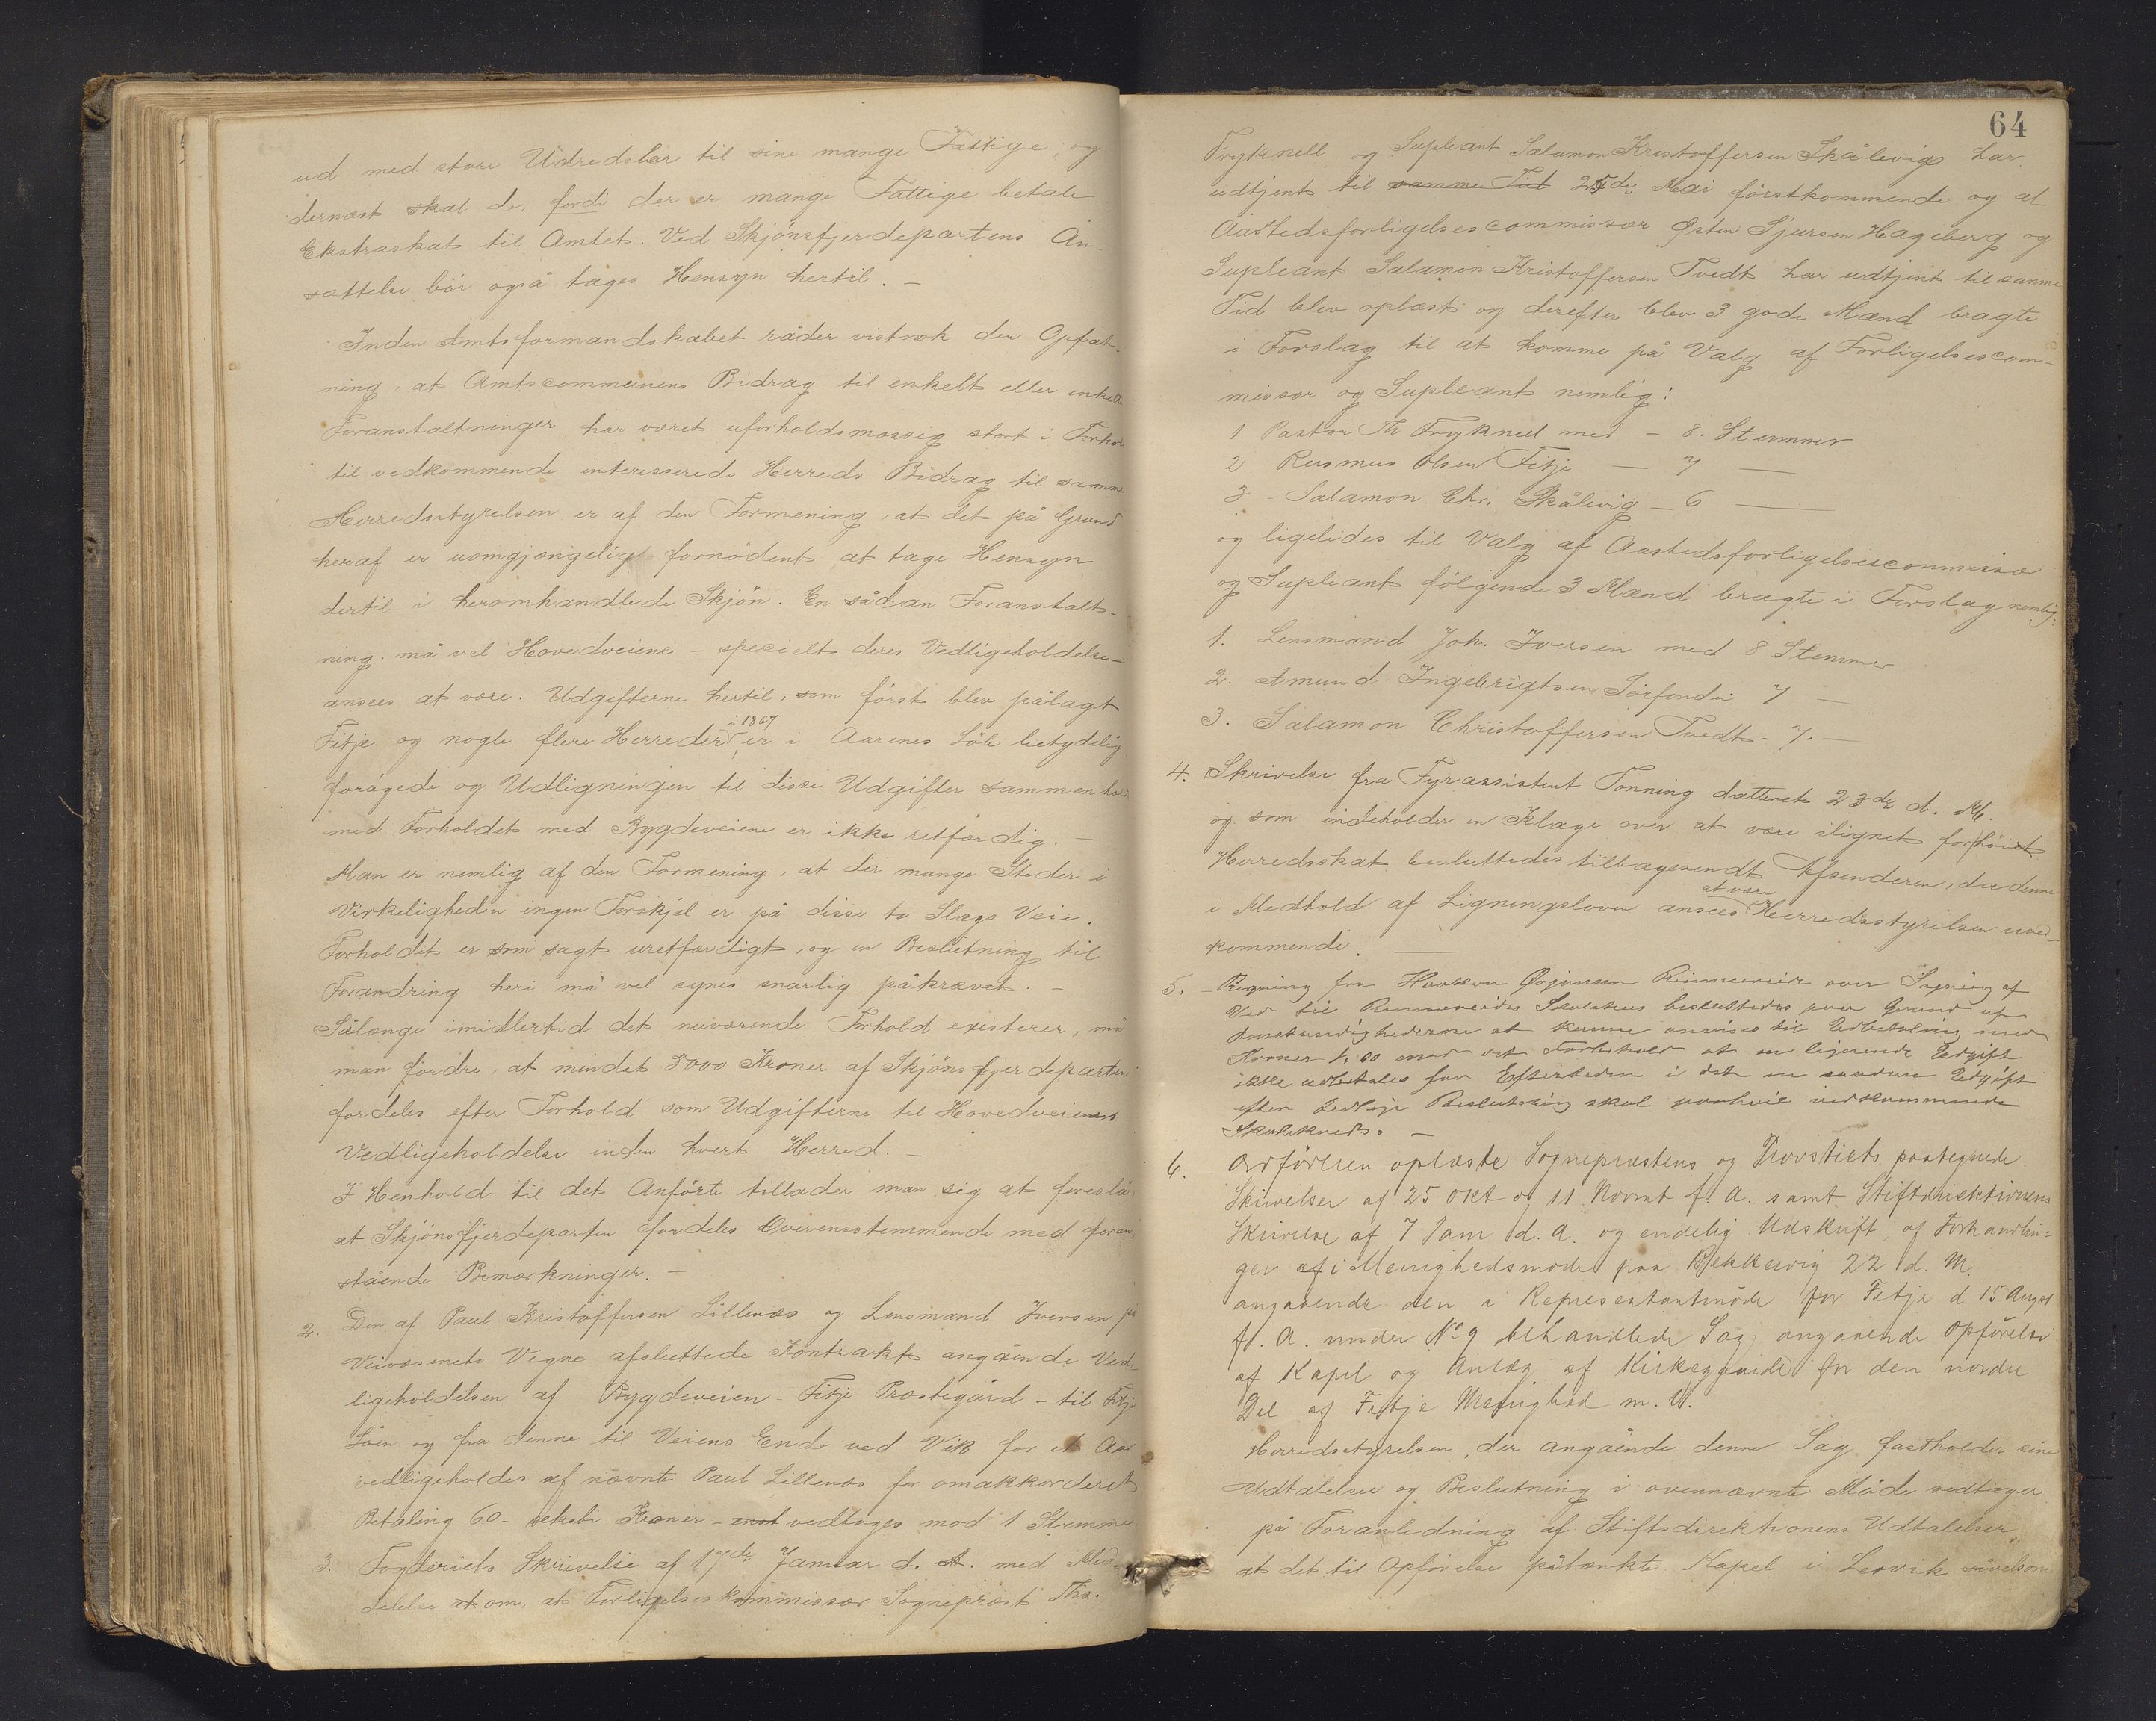 ud med store Udredsler til sine mange Fattige, og
dernæst skal de, fordi der er mange Fattige betale
Ekstraskat til Amtet. Ved Skjönsfjerdepartens An-
sættelse bör også tages Hensyn hertil. -
Inden Amtsformandskabet råder vistnok den Opfat-
ning, at Amtscommunens Bidrag til enkelt eller enkelte
Foranstaltninger har været uforholdsmæssig stort i Forhol
til vedkommende interesserede Herreds Bidrag til samme.
Herredsstyrelsen er af den Formening, at det på Grund
heraf er uomgjængeligt fornödent at tage Hensyn
dertil i heromhandlede Skjön. En sådan Foranstalt-
ning må vel Hovedveiene - specielt deres Vedligeholdelse -
ansees at være. Udgifterne hertil, som först blev pålagt
Fitje og nogle flere Herreder i 1867, er i Aarenes Löb betydelig
forögede og Udligningen til disse Udgifter sammenhold
med Forholdet med Bygdeveiene er ikke retfærdig. -
Man er nemlig af den Formening, at der mange Steder i
Virkeligheden ingen Forskjel er på disse to Slags Veie.
Forholdet er som sagt uretfærdigt, og en Beslutning til
Forandring heri må vel synes snarlig påkrævet. -
Sålænge imidlertid det nuværende Forhold existerer, må
man fordre, at mindst 5000 Kroner af Skjönsfjerdeparten
fordeles efter Forhold som Udgifterne til Hovedveienes
Vedligeholdelse inden hvert Herred. -
I Henhold til det Anförte tillader man sig at foreslå
at Skjönsfjerdeparten fordeles Overensstemmende med foran,
stående Bemærkninger. -
2. Den af Paul Kristoffersen Lillenæs og Lensmand Iversen på
Veivæsenets Vegne afsluttede Kontrakt angående Ved-
ligeholdelsen af Bygdeveien - Fitje Præstegård - til Fitje
Söen og fra denne til Veiens Ende ved Vik for et Aar
vedligeholdes af nævnte Paul Lillenæs for omakkorderet
Betaling 60 - seksti Kroner - vedtoges mod 1 Stemme
3. Fogderiets Skrivelse af 17de Januar d. A. med Med
delelse at om, at Forligelseskommissær Sognepræst Ths.
64
Fryknell og Supleant Salamon Kristoffersen Skålevig har
udtjent til samme Tid 25de Mai förstkommende og at
Aastedsforligelsescommissær Østen Sjursen Hageberg og
Supleant Salamon Kristoffersen Tvedt har udtjent til samme
Tid blev oplæst og derefter blev 3 gode Mænd bragte
i Forslag til at komme på Valg af Forligelsescom-
missær og Supleant nemlig:
1. Pastor Th Fryknell med - 8. Stemmer
2 Rasmus Olsen Fitje - 7 -
3 - Salamon Chr. Skålevig - 6 -
og ligeledes til Valg af Aastedsforligelsescommissær
og Supleant følgende 3 Mænd bragte i Forslag nemlig:
1. Lensmand Joh. Iversen med 8 Stemmer
2. Amund Ingebrigtsen Sörfonden 7 -
3. Salamon Christoffersen Tvedt - 7. -
4. Skrivelse fra Fyrassistent Tonning datteret 23de d. M.
og som indeholder en Klage over at være ilignet for höi
Herredsskat besluttedes tilbagesendt Afsenderen, da denne
i Medhold af Ligningsloven ansees at være Herredsstyrelsen uved-
kommende. -
5. Regning fra Haakon Ørjansen Rimmereide over Sagning af
Ved til Rimmereides Skolehus besluttedes paa Grund af
Omstændighederne at kunne anvises til Udbetaling med
Kroner 1,60 mod det Forbehold at en lignende Udgift
ikke udbetales for Eftertiden i det en saadan Udgift
efter Beslutning skal paahvile vedkommende
Skolekreds. -
6. Ordføreren oplæste Sognepræstens og Provstiets paategnede
Skrivelser af 25 Okt og 11 Novmt f. A. samt Stiftdirektionens
Skrivelse af 7 Jam d. a. og endelig Udskrift af Forhandlin=
ger af i Menighedsmøde paa Bekkervig 22 d. M.
angaaende den i Representantmöde for Fitje d 15 August
f. A. under No 9 behandlede Sag angaaende Opførelse
af Kapel og Anlæg af Kirkegaarde for den nordre
Del af Fitje Menighed m. V.
Herredsstyrelsen, der angående denne Sag fastholder sine
Udtalelser og Beslutning i ovennævnte Möde vedtager
på Foranledning af Stiftsdirektionens Udtalelser,
at det til Opførelse påtænkte Kapel i Lervik såvelsom